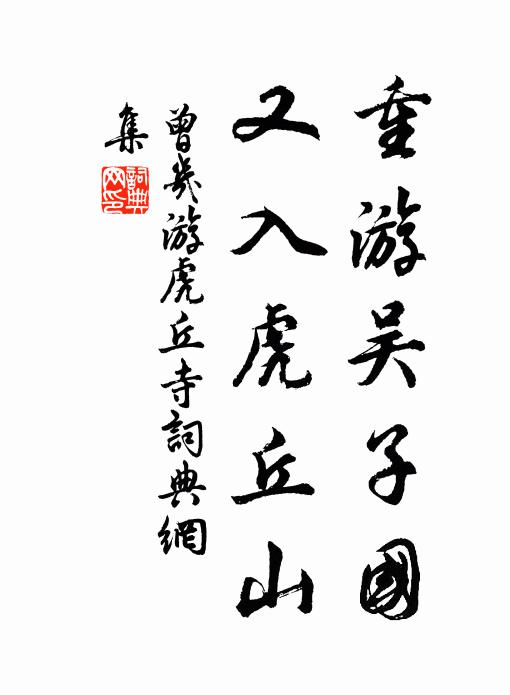 重游吴子國
又入虎丘山
曾幾游虎丘寺詞典網
集
詞典
网印